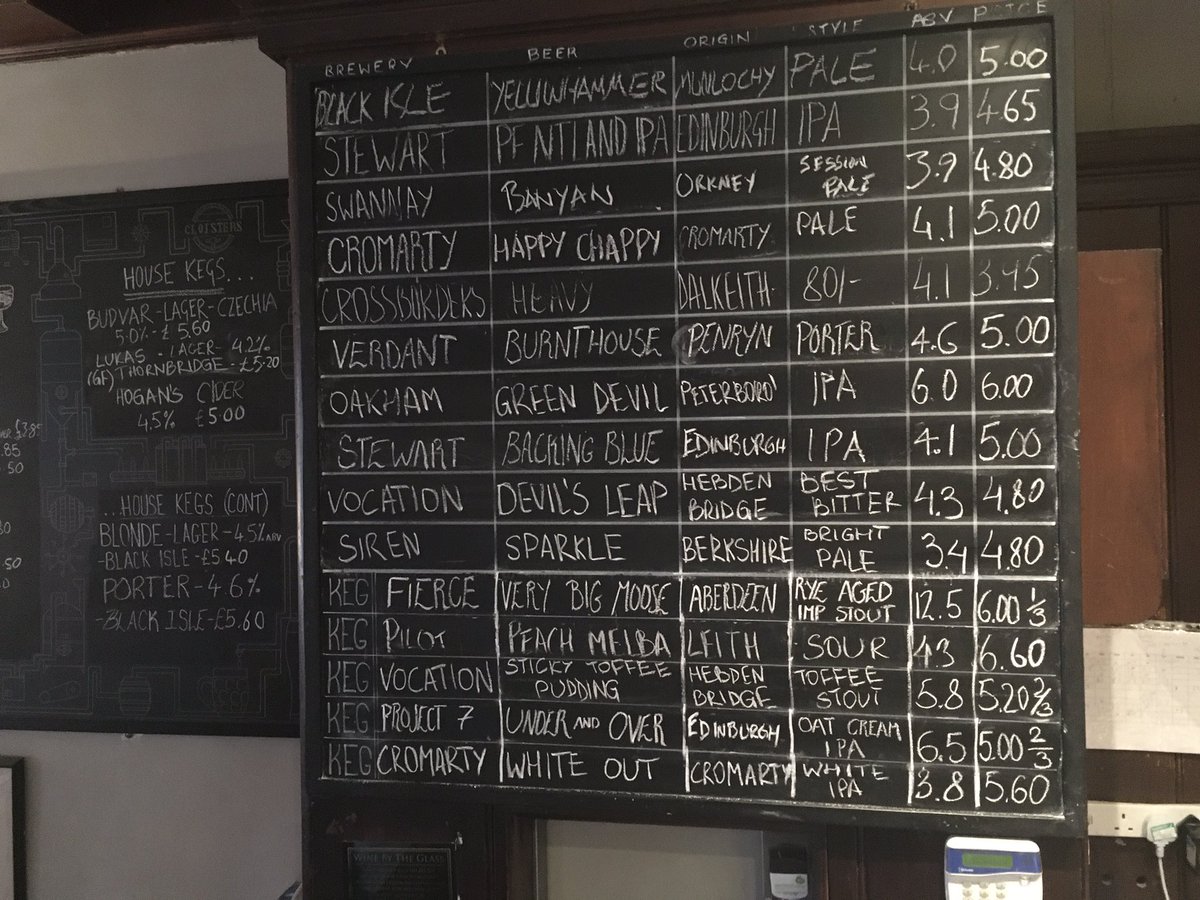 BREWERY BEER ORIGIN STYLE ABV PRICE
BLACK ISLE YELLOWHAMMER MUNLOCHY PALE 4.0 5.00
STEWART PENTLAND IPA EDINBURGH IPA 3.9 4.65
SWANNAY BANYAN ORKNEY SESSION PALE 3.9 4.80
CROMARTY HAPPY CHAPPY CROMARTY PALE 4.1 5.00
CROSSBORDERS HEAVY DALKEITH 80/- 4.1 3.45
VERDANT BURNTHOUSE PENRYN PORTER 4.6 5.00
OAKHAM GREEN DEVIL PETERBORO' IPA 6.0 6.00
STEWART BACKING BLUE EDINBURGH IPA 4.1 5.00
VOCATION DEVIL'S LEAP HEBDEN BRIDGE BEST BITTER 4.3 4.80
SIREN SPARKLE BERKSHIRE BRIGHT PALE 3.4 4.80
KEG FIERCE VERY BIG MOOSE ABERDEEN RYE AGED IMP STOUT 12.5 6.00 1/3
KEG PILOT PEACH MELBA LEITH SOUR 4.3 6.60
KEG VOCATION STICKY TOFFEE PUDDING HEBDEN BRIDGE TOFFEE STOUT 5.8 5.20 2/3
KEG PROJECT 7 UNDER AND OVER EDINBURGH OAT CREAM IPA 6.5 5.00 2/3
KEG CROMARTY WHITE OUT CROMARTY WHITE IPA 3.8 5.60
CLOISTERS
HOUSE KEGS...
BUDVAR-LAGER-CZECHIA
5.0%-£5.60
LUKAS - LAGER- 4.2%
(GF) THORNBRIDGE-£5.20
HOGAN'S CIDER
4.5% £5.00
...HOUSE KEGS (CONT)
BLONDE-LAGER-4.5% ABV
-BLACK ISLE-£5.40
PORTER-4.6%
-BLACK ISLE-£5.60
£3.85
.85
.50
.50
WINE BY THE GLASS